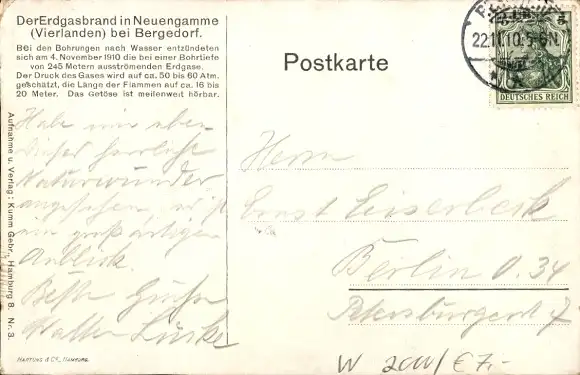 Der Erdgasbrand in Neuengamme
(Vierlanden) bei Bergedorf.
Bei den Bohrungen nach Wasser entzündeten
sich am 4. November 1910 die bei einer Bohrtiefe
von 245 Metern ausströmenden Erdgase.
Der Druck des Gases wird auf ca. 50 bis 60 Atm.
geschätzt, die Länge der Flammen auf ca. 16 bis
20 Meter. Das Getöse ist meilenweit hörbar.
Habe nun eben
dieses herrliche
Naturwunder
angesehen, es ist
ein großartiger
Anblick.
Beste Grüße
Walter
Aufnahme u. Verlag: Kumm Gebr., Hamburg 8. Nr. 3.
HARTUNG & Co., HAMBURG.
Postkarte
22.11.10.5-6N.
DEUTSCHES REICH
Herrn
Ernst
Berlin O. 34
Petersburgerst 7
W 2011/€ 7,-